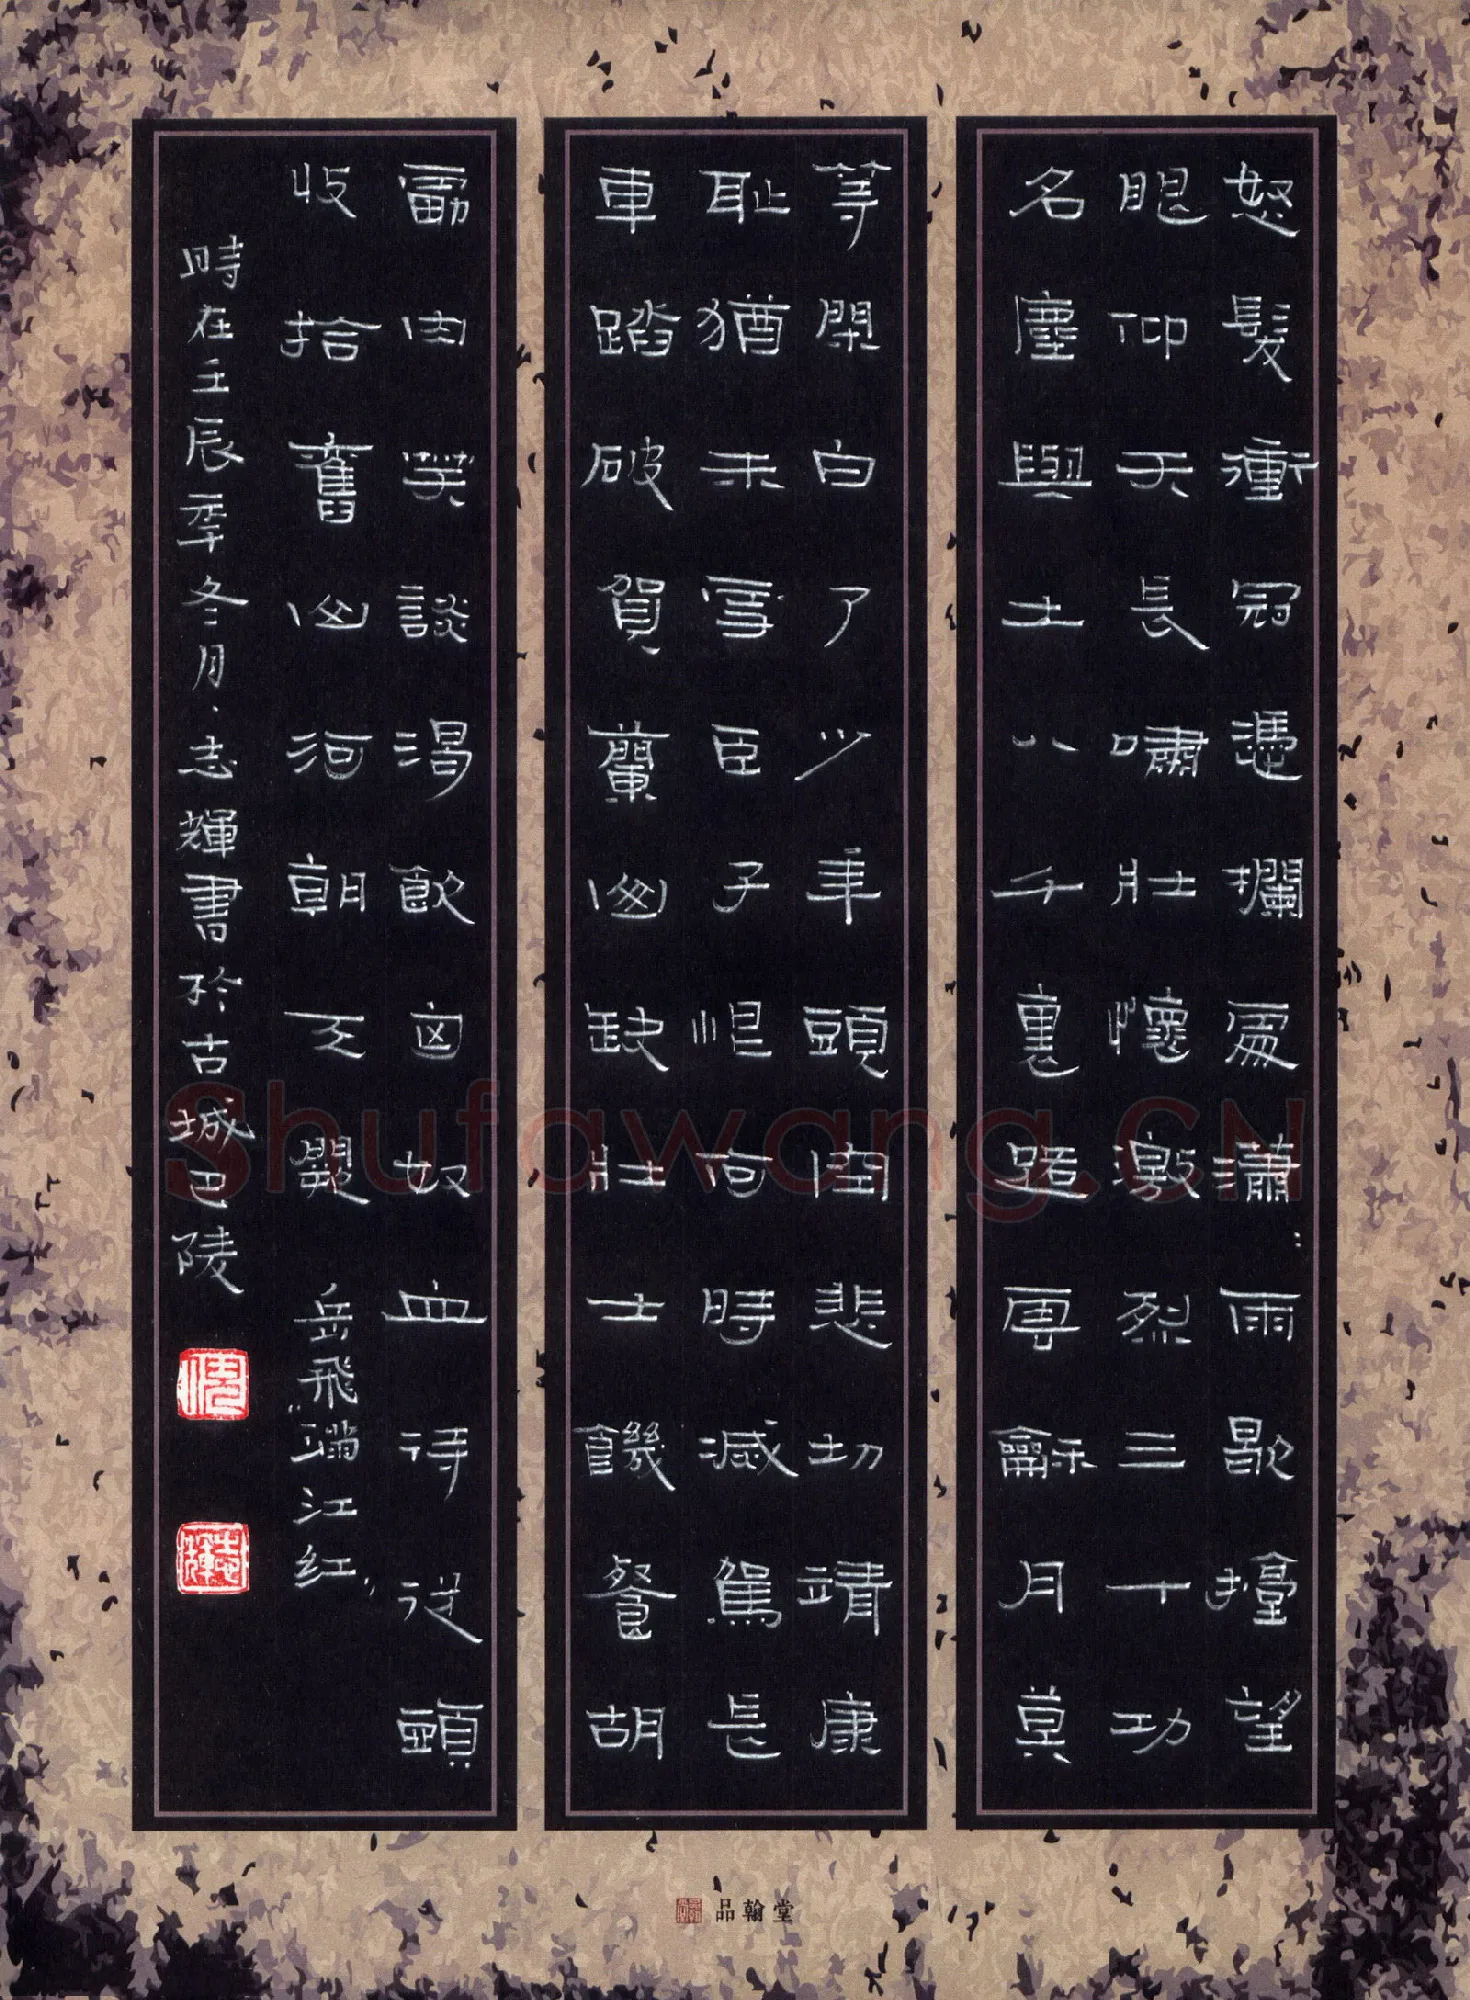 怒髮衝冠憑欄處瀟:雨歇擡望
眼仰天長嘯壯懷激烈三十功
名塵與土八千裏路雲龢月莫
等閑白了少年頭空悲切靖康
恥猶未雪臣子恨何時滅駕長
車踏破賀蘭山缺壯士饑餐胡
虜肉笑談渴飲匈奴血待從頭
收拾舊山河朝天闕 岳飛滿江紅
時在壬辰年冬月志輝書於古城巴陵
志輝
品翰堂
Shufawang.CN